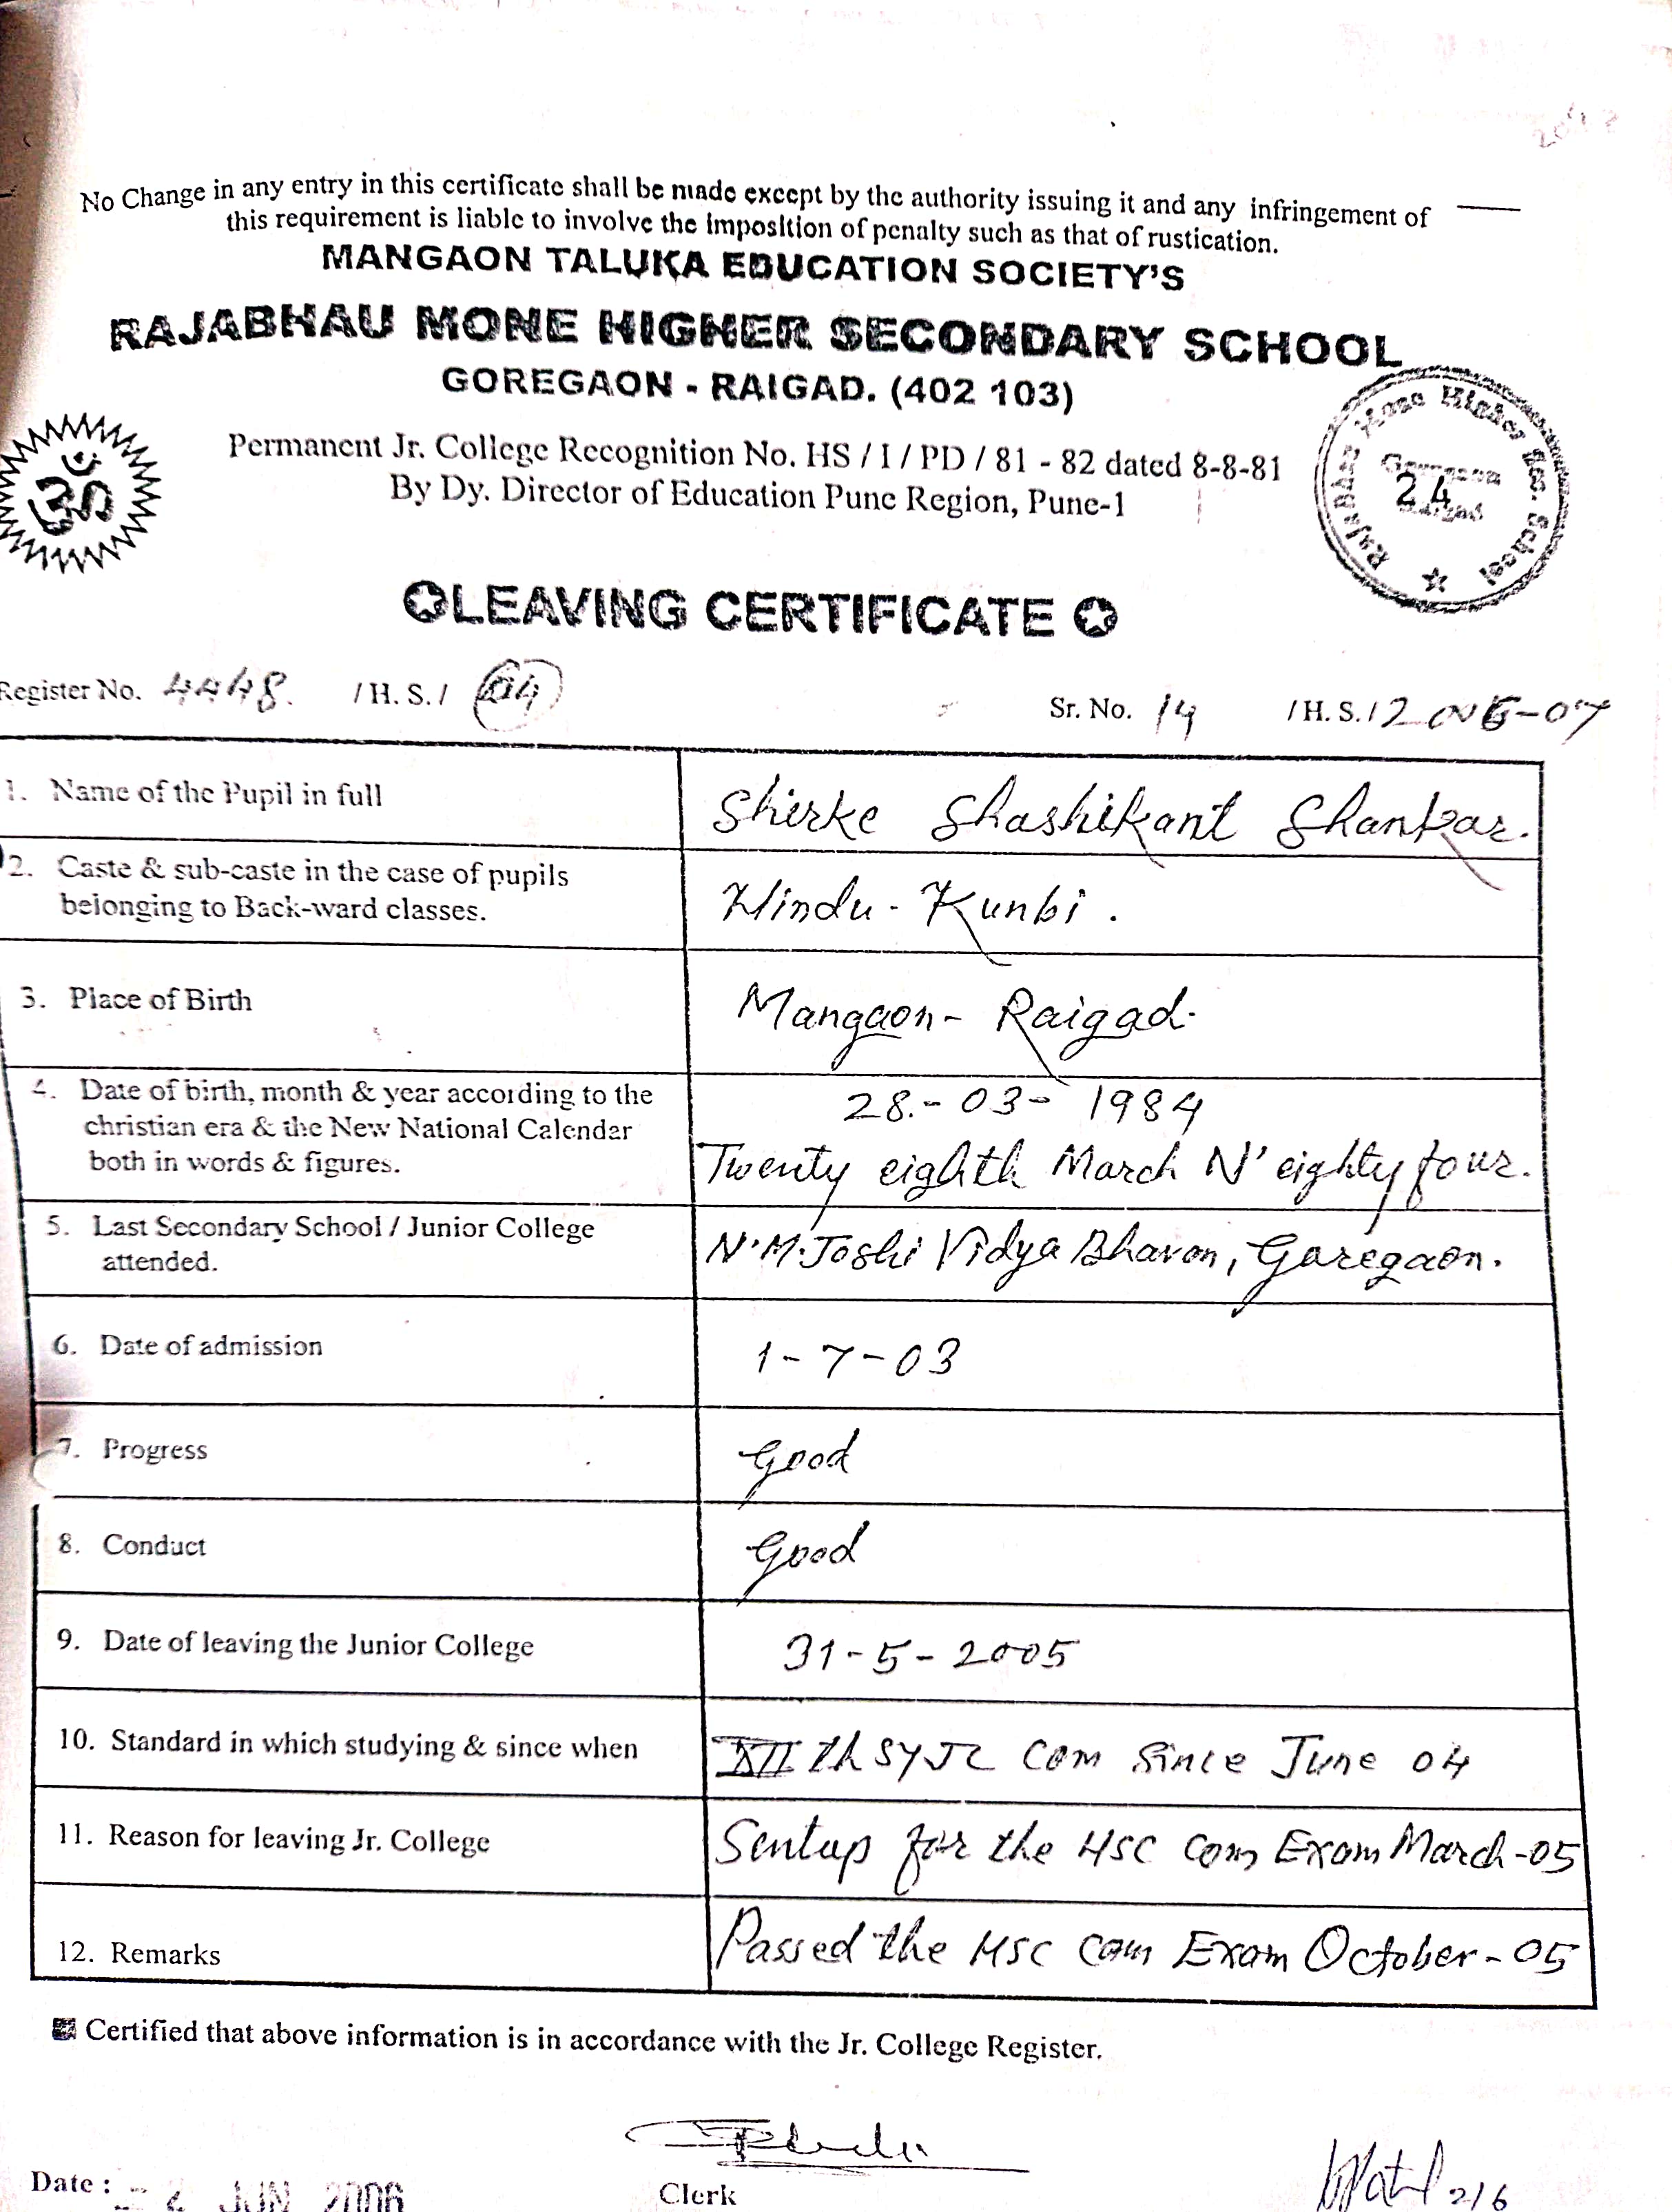 No Change in any entry in this certificate shall be made except by the authority issuing it and any infringement of
this requirement is liable to involve the imposition of penalty such as that of rustication.
MANGAON TALUKA EDUCATION SOCIETY'S
RAJABHAU MONE HIGHER SECONDARY SCHOOL
GOREGAON - RAIGAD. (402 103)
Permanent Jr. College Recognition No. HS / I / PD / 81 - 82 dated 8-8-81
By Dy. Director of Education Pune Region, Pune-1
ॐ
Rajabhau Mone Higher Sec. School
Goregaon
24
Raigad
LEAVING CERTIFICATE
Register No. 4448. / H. S. / 04
Sr. No. 14 / H. S. / 2006-07
1. Name of the Pupil in full Shirke Shashikant Shankar.
2. Caste & sub-caste in the case of pupils
belonging to Back-ward classes. Hindu - Kunbi.
3. Place of Birth Mangaon - Raigad.
4. Date of birth, month & year according to the
christian era & the New National Calendar
both in words & figures.
28.-03-1984
Twenty eighth March N' eighty four.
5. Last Secondary School / Junior College
attended. N.M. Joshi Vidya Bhavan, Goregaon.
6. Date of admission 1-7-03
7. Progress Good
8. Conduct Good
9. Date of leaving the Junior College 31-5-2005
10. Standard in which studying & since when XII th SYJC Com Since June 04
11. Reason for leaving Jr. College Sentup for the HSC Com Exam March-05
12. Remarks Passed the HSC Com Exam October-05
Certified that above information is in accordance with the Jr. College Register.
Date : - 2 JUN 2006
Clerk
2/6